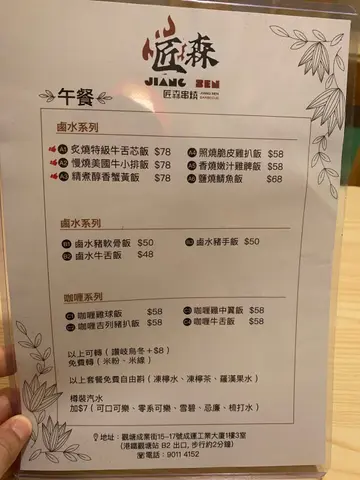 匠森
JIANG SEN
匠森串燒 JIANG SEN BARBECUE
午餐
鹵水系列
A1 炙燒特級牛舌芯飯 $78
A4 照燒脆皮雞扒飯 $58
A2 慢燒美國牛小排飯 $78
A5 香燒嫩汁雞髀飯 $58
A3 精煮醇香蟹黃飯 $78
A6 鹽燒鯖魚飯 $68
鹵水系列
B1 鹵水豬軟骨飯 $50
B3 鹵水豬手飯 $50
B2 鹵水牛舌飯 $48
咖喱系列
C1 咖喱雞球飯 $58
C3 咖喱雞中翼飯 $58
C2 咖喱吉列豬扒飯 $58
C4 咖喱牛舌飯 $58
以上可轉（讚岐烏冬+$8）
免費轉（米粉、米線）
以上套餐免費自由斟（凍檸水、凍檸茶、羅漢果水）
樽裝汽水
加$7（可口可樂、零系可樂、雪碧、忌廉、梳打水）
地址：觀塘成業街15-17號成運工業大廈1樓3室
(港鐵觀塘站 B2 出口, 步行約2分鐘)
電話：9011 4152